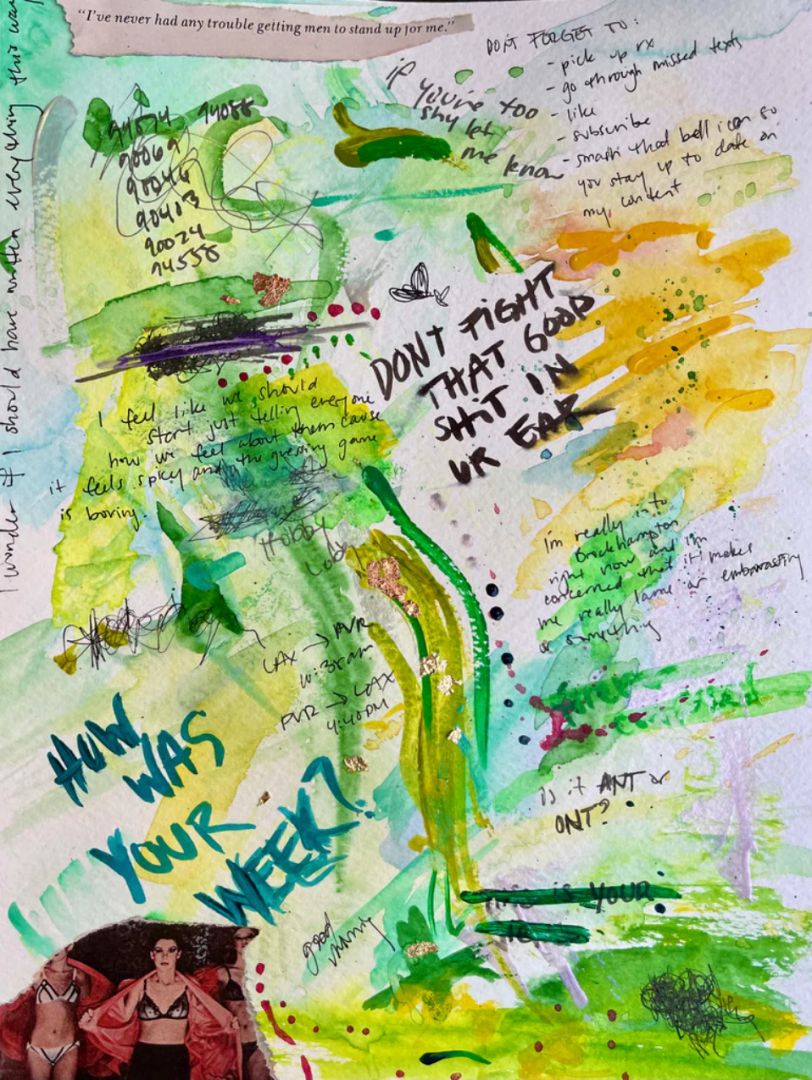 "I've never had any trouble getting men to stand up for me."
DON'T FORGET TO:
- pick up rx
- go through missed texts
- like
- subscribe
- smash that bell icon so
you stay up to date on
my content
if you're too
shy let
me know
I wonder if I should have written everything this way
94574 94088
90069
90046
90403
90024
94558
DONT FIGHT
THAT GOOD
SHIT IN
UR EAR
I feel like we should
start just telling everyone
how we feel about them cause
it feels spicy and the guessing game
is boring.
Hobby
Lobby
I'm really into
Brockhampton
right now and I'm
concerned that it makes
me really lame or embarrasing
or something
LAX → PVR
10:32am
PVR → LAX
4:40PM
HOW
WAS
YOUR
WEEK?
Is it ANT or
ONT?
is your
good